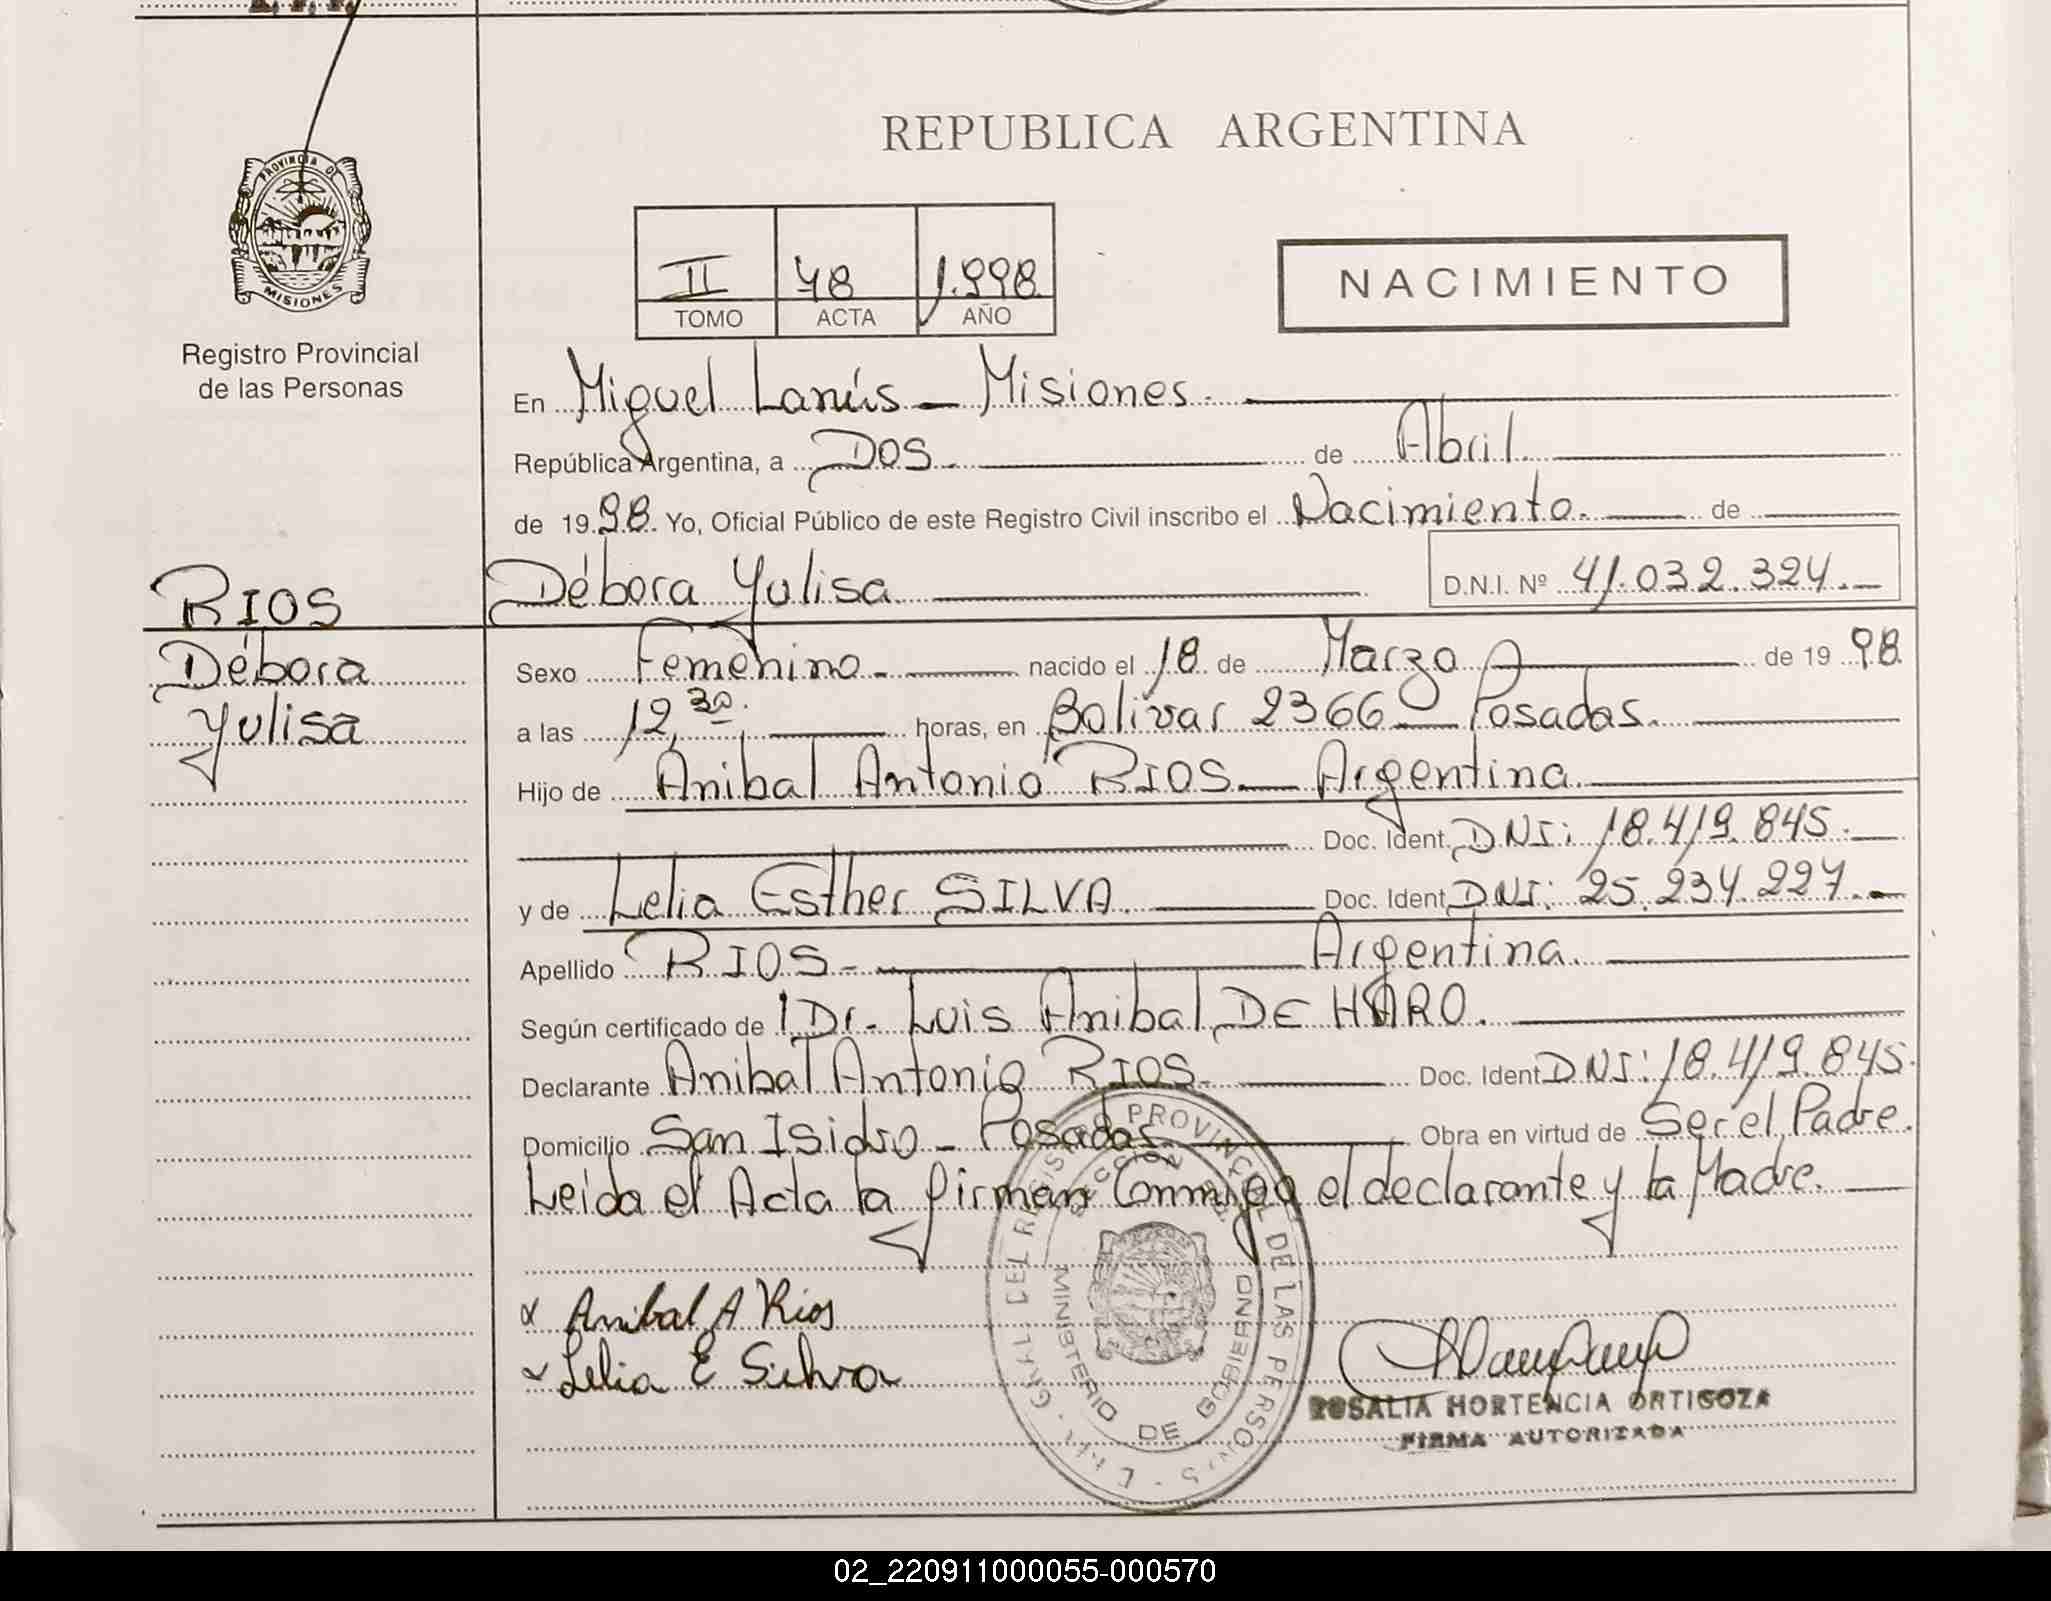 PROVINCIA DE
MISIONES
Registro Provincial
de las Personas
RIOS
Débora
Yulisa
REPUBLICA ARGENTINA
II 48 1.998
TOMO ACTA AÑO
NACIMIENTO
En Miguel Lanús - Misiones.
República Argentina, a DOS. de Abril.
de 1998. Yo, Oficial Público de este Registro Civil inscribo el Nacimiento. de
Débora Yulisa D.N.I. Nº 41.032.324.-
Sexo Femenino.- nacido el 18 de Marzo de 1998
a las 12,30. horas, en Bolívar 2366 - Posadas.
Hijo de Anibal Antonio RIOS.- Argentina.
Doc. Ident. DNI: 18.419.845.-
y de Lelia Esther SILVA. Doc. Ident. DNI: 25.234.227.-
Apellido RIOS.- Argentina.
Según certificado de Dr. Luis Anibal DE HARO.
Declarante Anibal Antonio RIOS. Doc. Ident DNI: 18.419.845.
Domicilio San Isidro - Posadas. Obra en virtud de Ser el Padre.
Leida el Acta la firman Conmigo el declarante y la Madre.
Anibal A Rios
Lelia E Silva
GRAL. DEL REGISTRO PROVINCIAL DE LAS PERSONAS
MINISTERIO DE GOBIERNO
ROSALIA HORTENCIA ORTIGOZA
FIRMA AUTORIZADA
02_220911000055-000570